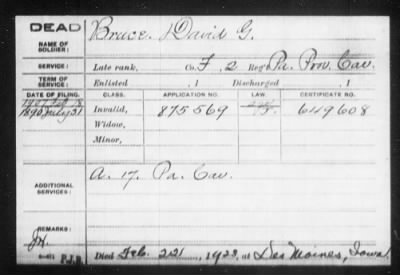 DEAD
NAME OF SOLDIER: Bruce. David G.
SERVICE: Late rank, Co. F, 2 Reg't Pa. Prov. Cav.
TERM OF SERVICE: Enlisted , 1 Discharged , 1
DATE OF FILING. CLASS. APPLICATION NO. LAW. CERTIFICATE NO.
1907 Feb 18
1890 July 31 Invalid, 875569 649608
Widow,
Minor,
ADDITIONAL SERVICES: A. 17. Pa. Cav.
REMARKS:
Died Feb. 22, 1923, at Des Moines, Iowa
P.J.B.